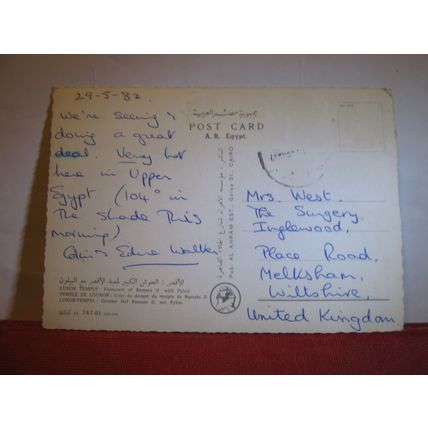 29-5-82.
We're seeing &
doing a great
deal. Very hot
here in Upper
Egypt (104° in
The Shade This
morning)
Edna Walker
جمهورية مصر العربية
POST CARD
A. R. Egypt.
Mrs. West.
The Surgery
Inglewood,
Place Road,
Melksham,
Wiltshire,
United Kingdom
Pub. AL AHRAM EST. Galaa St. CAIRO
الأقصر : الحوش الكبير لمعبد الأقصر مع البيلون
LUXOR TEMPLE: Forecourt of Ramses II with Pylon
TEMPLE DE LOUXOR: Cour du devant du temple de Ramsès II
LUXOR-TEMPEL: Grosser Hof Ramses II. mit Pylon
747.01